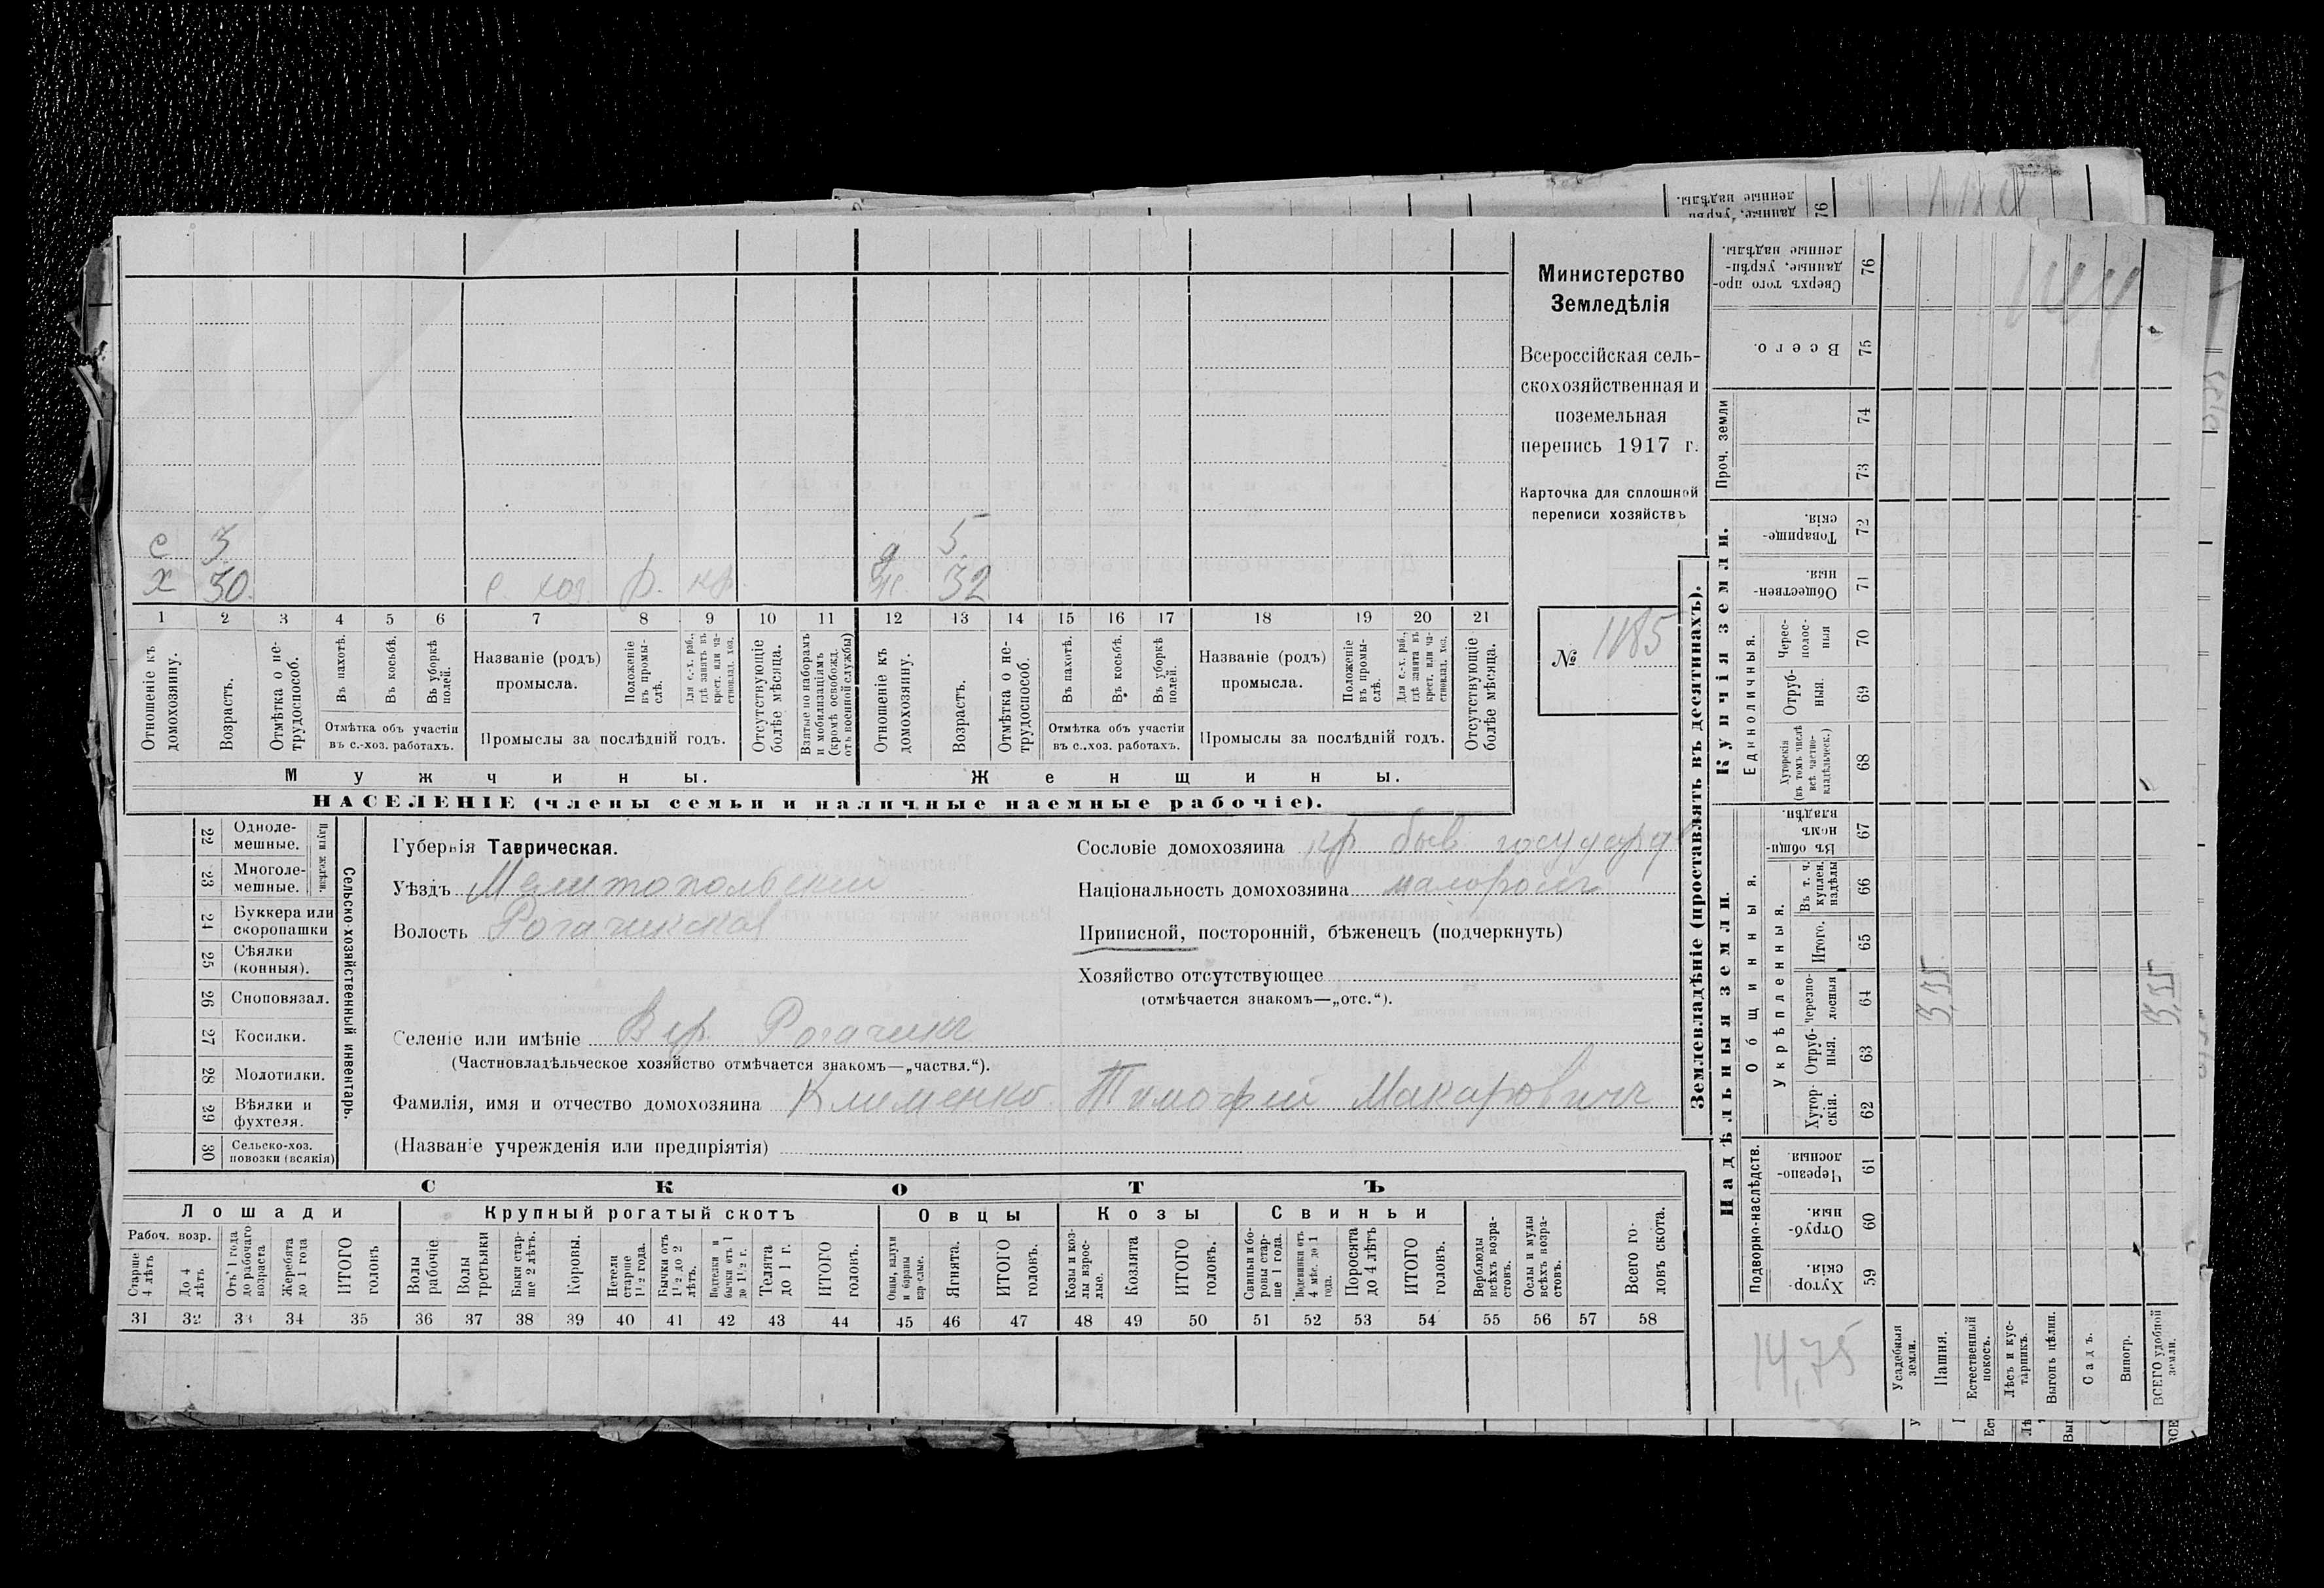 с 3 д 5
х 30. с. хоз. р. кр. ж. 32
1 2 3 4 5 6 7 8 9 10 11 12 13 14 15 16 17 18 19 20 21
Отношеніе къ домохозяину.
Возрастъ.
Отмѣтка о не-
трудоспособ.
Въ пахотѣ.
Въ косьбѣ.
Въ уборкѣ
полей.
Отмѣтка объ участіи
въ с.-хоз. работахъ.
Названіе (родъ)
промысла.
Положеніе
въ промы-
слѣ.
Для с.-х. раб.,
гдѣ занятъ въ
крест. или ча-
стновлад. хоз.
Промыслы за послѣдній годъ.
Отсутствующіе
болѣе мѣсяца.
Взятые по наборамъ
и мобилизаціямъ
(кромѣ освобожд.
отъ военной службы)
Отношеніе къ
домохозяину.
Возрастъ.
Отмѣтка о не-
трудоспособ.
Въ пахотѣ.
Въ косьбѣ.
Въ уборкѣ
полей.
Отмѣтка объ участіи
въ с.-хоз. работахъ.
Названіе (родъ)
промысла.
Положеніе
въ промы-
слѣ.
Для с.-х. раб.,
гдѣ занята въ
крест. или ча-
стновлад. хоз.
Промыслы за послѣдній годъ.
Отсутствующіе
болѣе мѣсяца.
Мужчины.
Женщины.
НАСЕЛЕНІЕ (члены семьи и наличные наемные рабочіе).
Министерство
Земледѣлія
Всероссійская сель-
скохозяйственная и
поземельная
перепись 1917 г.
Карточка для сплошной
переписи хозяйствъ
№ 1185
22 Одноле-
мешные.
23 Многоле-
мешные.
Плуги желѣзн.
24 Буккера или
скоропашки
25 Сѣялки
(конныя).
26 Сноповязал.
27 Косилки.
28 Молотилки.
29 Вѣялки и
фухтеля.
30 Сельско-хоз.
повозки (всякія)
Сельско-хозяйственный инвентарь.
Губернія Таврическая.
Уѣздъ Мелитопольскій
Волость Рогачикская
Селеніе или имѣніе Вер. Рогачикъ
(Частновладѣльческое хозяйство отмѣчается знакомъ—„частвл.“).
Фамилія, имя и отчество домохозяина Клименко Тимофей Макаровичъ
(Названіе учрежденія или предпріятія)
Сословіе домохозяина кр быв государ
Національность домохозяина малоросъ
Приписной, посторонній, бѣженецъ (подчеркнуть)
Хозяйство отсутствующее
(отмѣчается знакомъ—„отс.“).
СКОТЪ
Лошади
Рабоч. возр.
Старше
4 лѣтъ
До 4
лѣтъ.
Отъ 1 года
до рабочаго
возраста
Жеребята
до 1 года
ИТОГО
головъ
Крупный рогатый скотъ
Волы
рабочіе
Волы
третьяки
Быки стар-
ше 2 лѣтъ.
Коровы.
Нетели
старше
1½ года.
Бычки отъ
1½ до 2
лѣтъ.
Подтелки и
бычки отъ 1
до 1½ г.
Телята
до 1 г.
ИТОГО
головъ.
Овцы
Овцы, валухи
и бараны
взрослые.
Ягнята.
ИТОГО
головъ.
Козы
Козы и коз-
лы взрос-
лые.
Козлята
ИТОГО
головъ.
Свиньи
Свиньи и бо-
ровы стар-
ше 1 года.
Подсвинки отъ
4 мѣс. до 1
года.
Поросята
до 4 лѣтъ
ИТОГО
головъ.
Верблюды
всѣхъ возра-
стовъ.
Ослы и мулы
всѣхъ возра-
стовъ.
Всего го-
ловъ скота.
31 32 33 34 35 36 37 38 39 40 41 42 43 44 45 46 47 48 49 50 51 52 53 54 55 56 57 58
Землевладѣніе (проставлять въ десятинахъ).
Надѣльныя земли.
Подворно-наслѣдств.
Хутор-
скія. 59
Отруб-
ныя. 60
Черезпо-
лосныя. 61
Общинныя.
Укрѣпленныя.
Хутор-
скія. 62
Отруб-
ныя. 63
Черезпо-
лосныя 64
Итого. 65
Въ т. ч.
куплен.
надѣлы 66
Въ общи-
номъ
владѣн. 67
Купчія земли.
Единоличныя.
Хуторскія
(въ томъ числѣ
всѣ частно-
владѣльческ.) 68
Отруб-
ныя. 69
Черес-
полос-
ныя 70
Обществен-
ныя. 71
Товарище-
скія. 72
Проч. земли
73 74
Всего. 75
Сверхъ того про-
данные, укрѣп-
ленные надѣлы. 76
14,75
Усадебныя
земли.
Пашня.
Естественный
покосъ.
Лѣсъ и кус-
тарникъ.
Выгонъ цѣлин.
Садъ.
Виногр.
ВСЕГО удобной
земли.